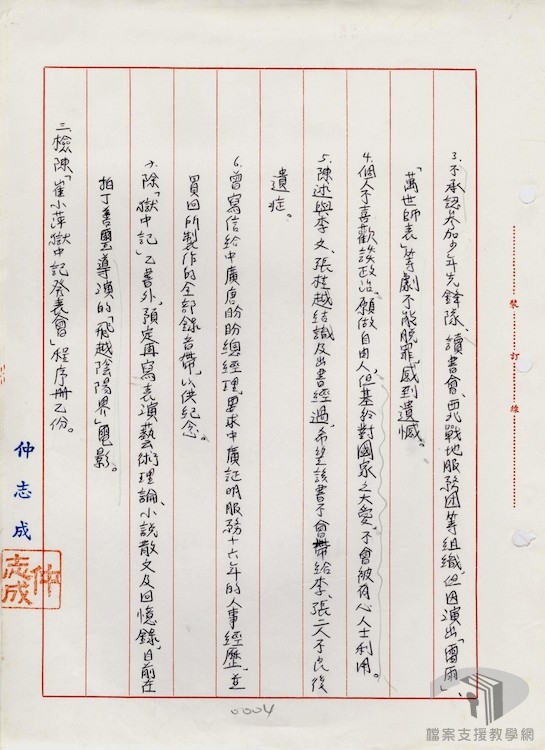 3.不承認參加少年先鋒隊、讀書會、西北戰地服務团等組織,但因演出「雷雨」、
「萬世師表」等劇不能脫罪,感到遺憾。
4.個人不喜歡談政治,願做自由人,但基於對國家之大愛,不會被有心人士利用。
5.陳述與李文、張桂越結識及出書經過,希望該書不會帶給李、張二人不良後
遺症。
6.曾寫信給中廣唐盼盼總經理,要求中廣証明服務十六年的人事經歷,並
買回所製作的全部錄音帶,以供紀念。
7.除「獄中記」乙書外,預定再寫表演藝術理論小說散文及回憶錄,目前在
拍丁善璽導演的「飛越陰陽界」電影。
三、檢陳「崔小萍獄中記發表會」程序冊乙份。
仲志成
仲志成
裝訂線
0004
檔案支援教學網